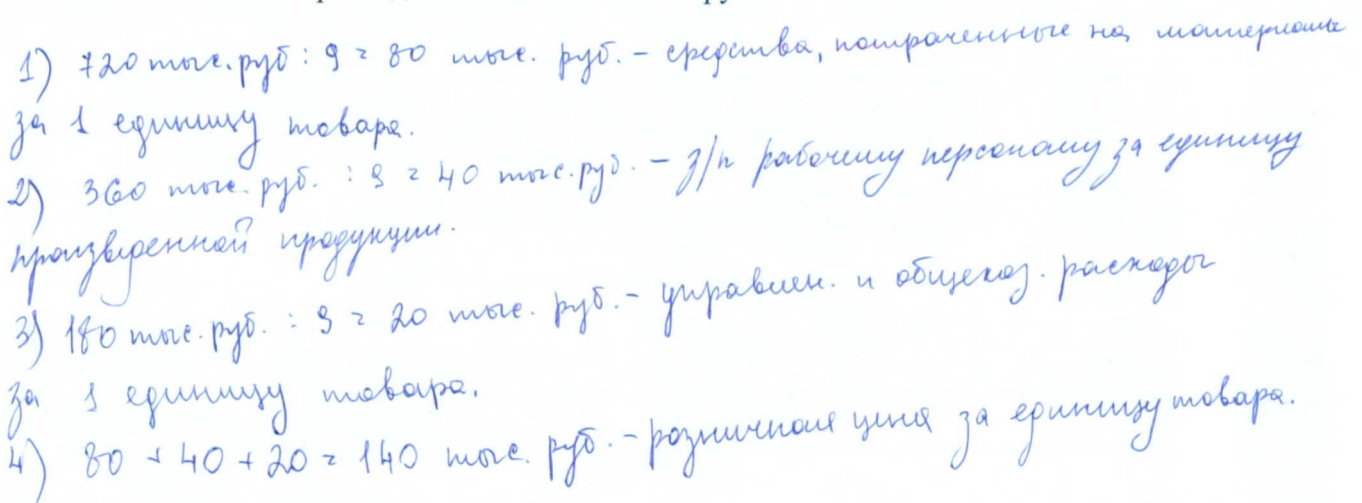 1) 720 тыс. руб : 9 = 80 тыс. руб. – средства, потраченные на материалы
за 1 единицу товара.
2) 360 тыс. руб. : 9 = 40 тыс. руб. – з/п рабочему персоналу за единицу
произведенной продукции.
3) 180 тыс. руб. : 9 = 20 тыс. руб. – управлен. и общехоз. расходы
за 1 единицу товара.
4) 80 + 40 + 20 = 140 тыс. руб. – розничная цена за единицу товара.